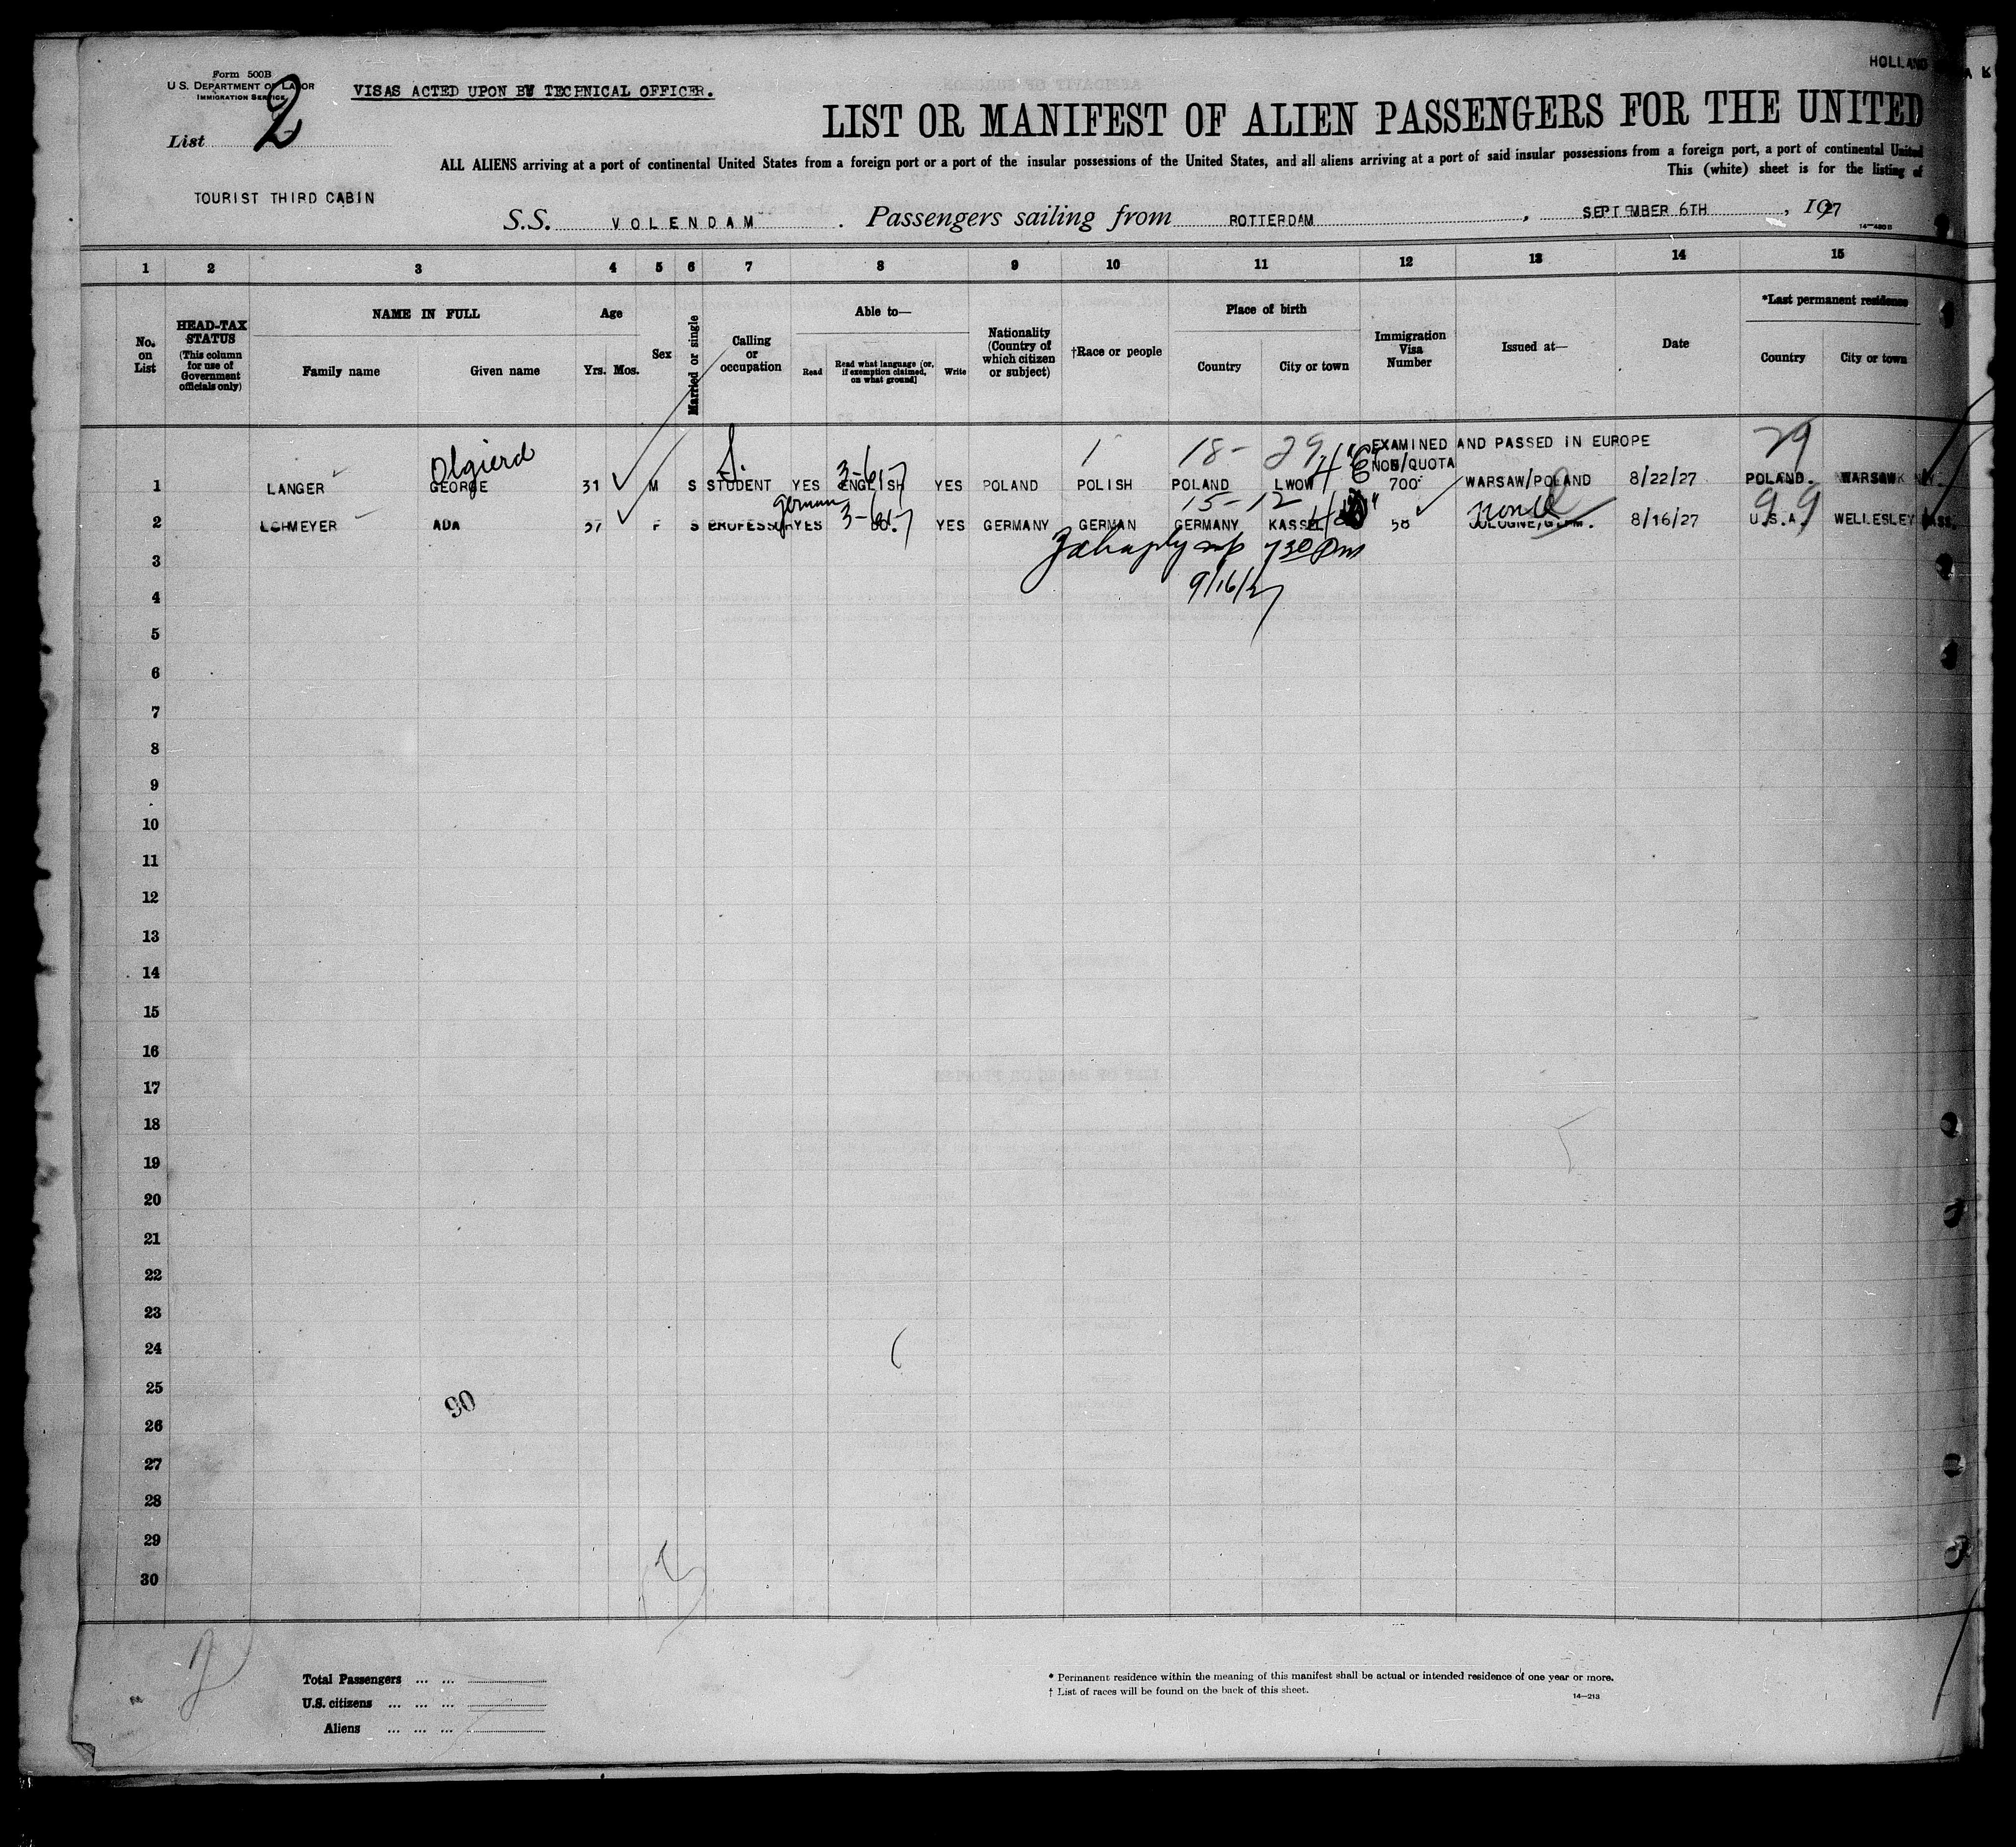 HOLLAND
Form 500B
U.S. DEPARTMENT OF LABOR
IMMIGRATION SERVICE
VISAS ACTED UPON BY TECHNICAL OFFICER.
List 2
LIST OR MANIFEST OF ALIEN PASSENGERS FOR THE UNITED
ALL ALIENS arriving at a port of continental United States from a foreign port or a port of the insular possessions of the United States, and all aliens arriving at a port of said insular possessions from a foreign port, a port of continental United
This (white) sheet is for the listing of
TOURIST THIRD CABIN
S.S. VOLENDAM. Passengers sailing from ROTTERDAM, SEPTEMBER 6TH, 1927
14—480B
1 2 3 4 5 6 7 8 9 10 11 12 13 14 15
No. on List
HEAD-TAX STATUS (This column for use of Government officials only)
NAME IN FULL
Family name Given name
Age
Yrs. Mos.
Sex
Married or single
Calling or occupation
Able to—
Read Read what language (or, if exemption claimed, on what ground) Write
Nationality (Country of which citizen or subject)
†Race or people
Place of birth
Country City or town
Immigration Visa Number
Issued at—
Date
*Last permanent residence
Country City or town
Olgierd 3-6 1 18- 29 4"E" EXAMINED AND PASSED IN EUROPE 29
NON/QUOTA
1 LANGER GEORGE 31 M S STUDENT YES ENGLISH YES POLAND POLISH POLAND LWOW 700 WARSAW/POLAND 8/22/27 POLAND. WARSAW
German 3-6 15-12 99
2 LOHMEYER ADA 37 F S PROFESSOR YES YES GERMANY GERMAN GERMANY KASSEL 58 COLOGNE/GERM. 8/16/27 U.S.A. WELLESLEY MASS.
3 730 Pm
4 9/16/27
5
6
7
8
9
10
11
12
13
14
15
16
17
18
19
20
21
22
23
24
25
90
26
27
28
29
30
Total Passengers ... ...
U.S. citizens ... ... ...
Aliens ... ... ...
* Permanent residence within the meaning of this manifest shall be actual or intended residence of one year or more.
† List of races will be found on the back of this sheet.
14—213